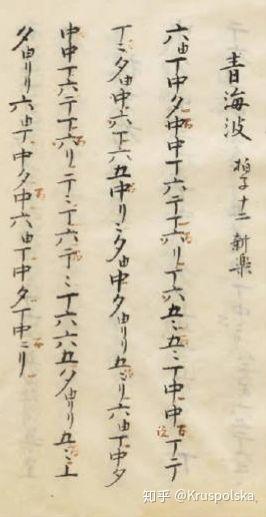 青海波 拍子十二 新楽
六由丁中夕中中丁六テ丁六リ丁六五ミ五ミ丁中中丁テ
丁ミ夕由中六丁六五中リミ夕由中夕由リリ五ミリ六由丁中夕
中中丁六テ丁六リテミ丁六テミ丁六六五ハ夕由リリ五ミ上
夕由リリ六由丁中夕中六由丁中夕丁中ミリ
知乎 @Kruspolska.